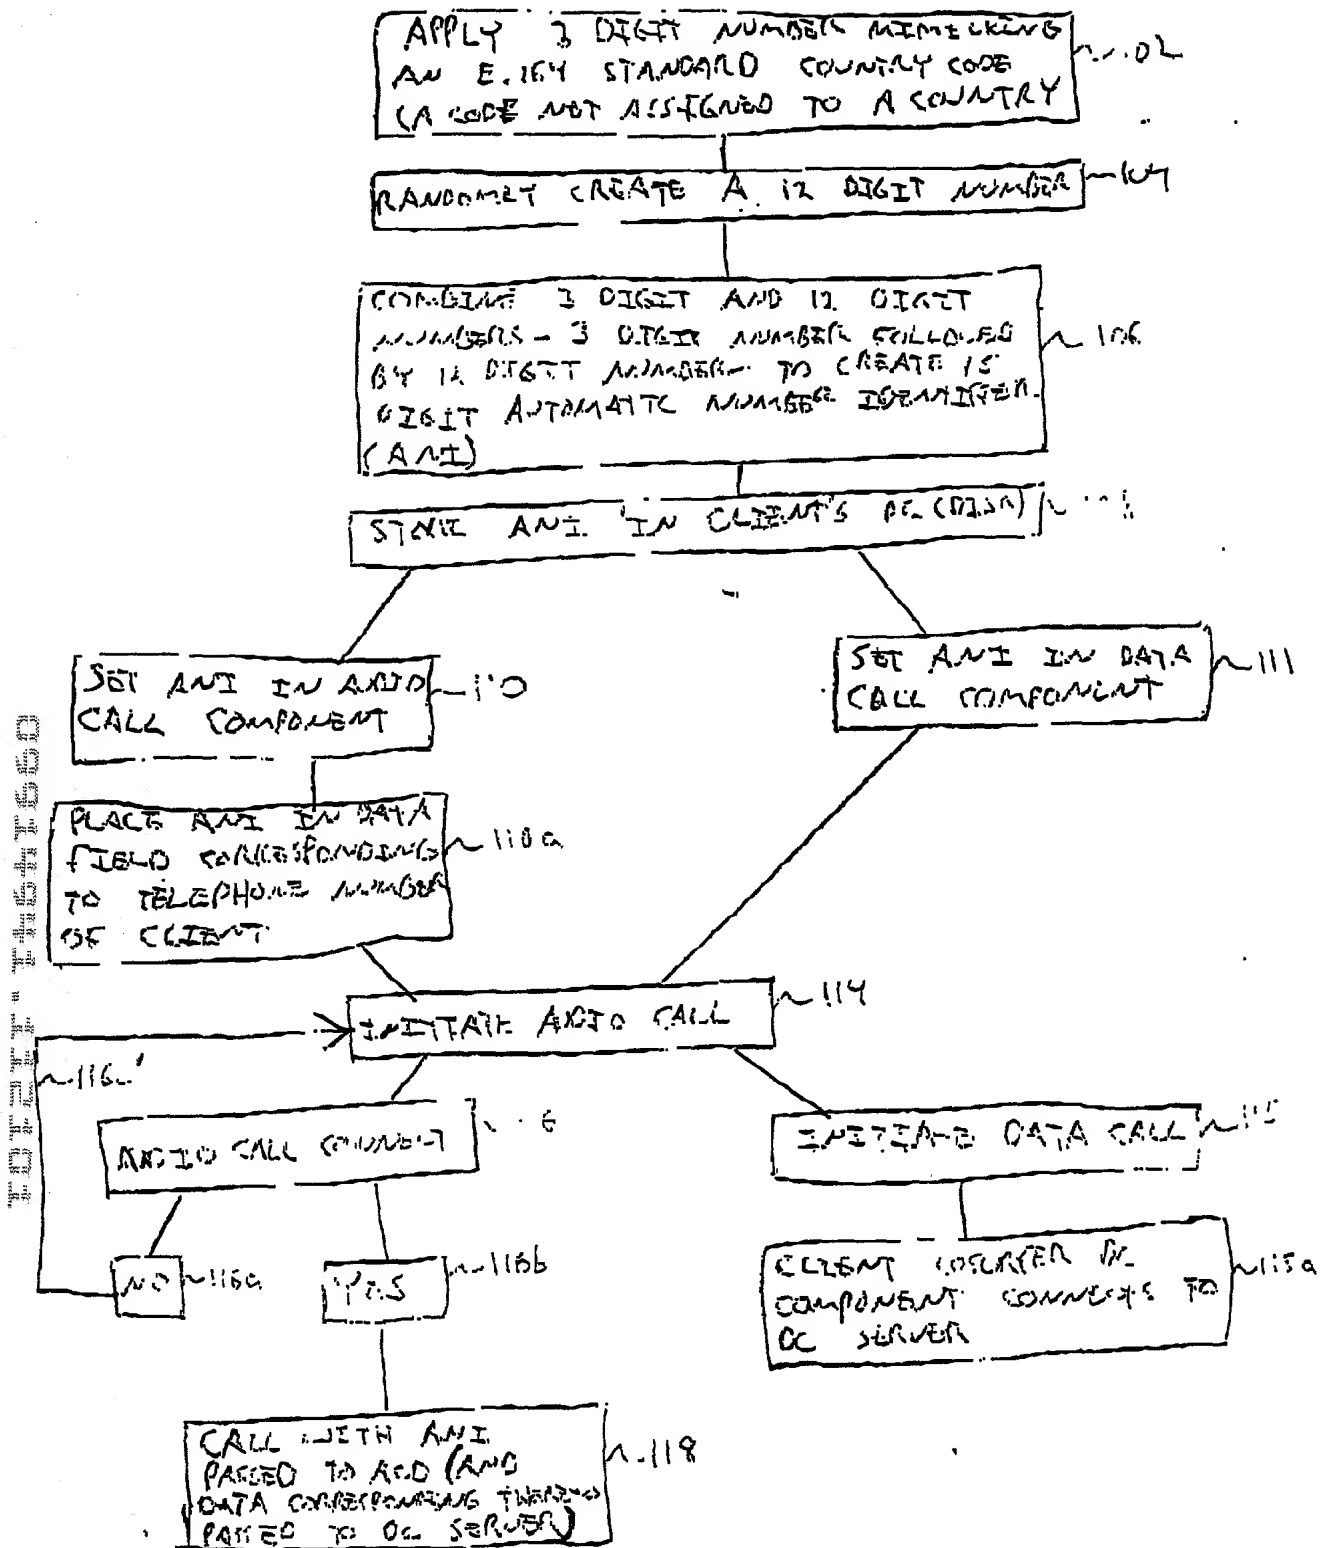 APPLY 3 DIGIT NUMBER MIMICKING
AN E.164 STANDARD COUNTRY CODE
(A CODE NOT ASSIGNED TO A COUNTRY
RANDOMLY CREATE A 12 DIGIT NUMBER
104
COMBINE 3 DIGIT AND 12 DIGIT
NUMBERS - 3 DIGIT NUMBER FOLLOWED
BY 12 DIGIT NUMBER - TO CREATE 15
DIGIT AUTOMATIC NUMBER IDENTIFIER
(ANI)
106
STORE ANI IN CLIENT'S PC (DISK)
SET ANI IN AUDIO
CALL COMPONENT
110
SET ANI IN DATA
CALL COMPONENT
111
PLACE ANI IN DATA
FIELD CORRESPONDING
TO TELEPHONE NUMBER
OF CLIENT
110a
INITIATE AUDIO CALL
114
116a'
AUDIO CALL CONNECT
INITIATE DATA CALL
115
NO
116a
YES
116b
CLIENT
COMPONENT CONNECTS TO
DC SERVER
115a
CALL WITH ANI
PASSED TO ACD (AND
DATA CORRESPONDING THERETO
PASSED TO DC SERVER)
118